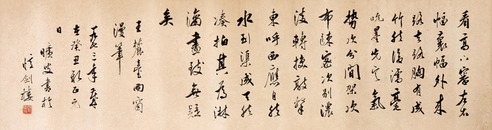 看高下審左右
幅裏幅外來
路去路胸有成
竹然後濡毫
吮墨先定氣
勢次分間架次
布疏密次別濃
淡轉換敲擊
東呼西應自然
水到渠成天然
湊拍其為淋
漓盡致無疑
矣
王麓臺雨窗
漫筆
一九七三年歲
在癸丑新正元
日
書於
劍樓